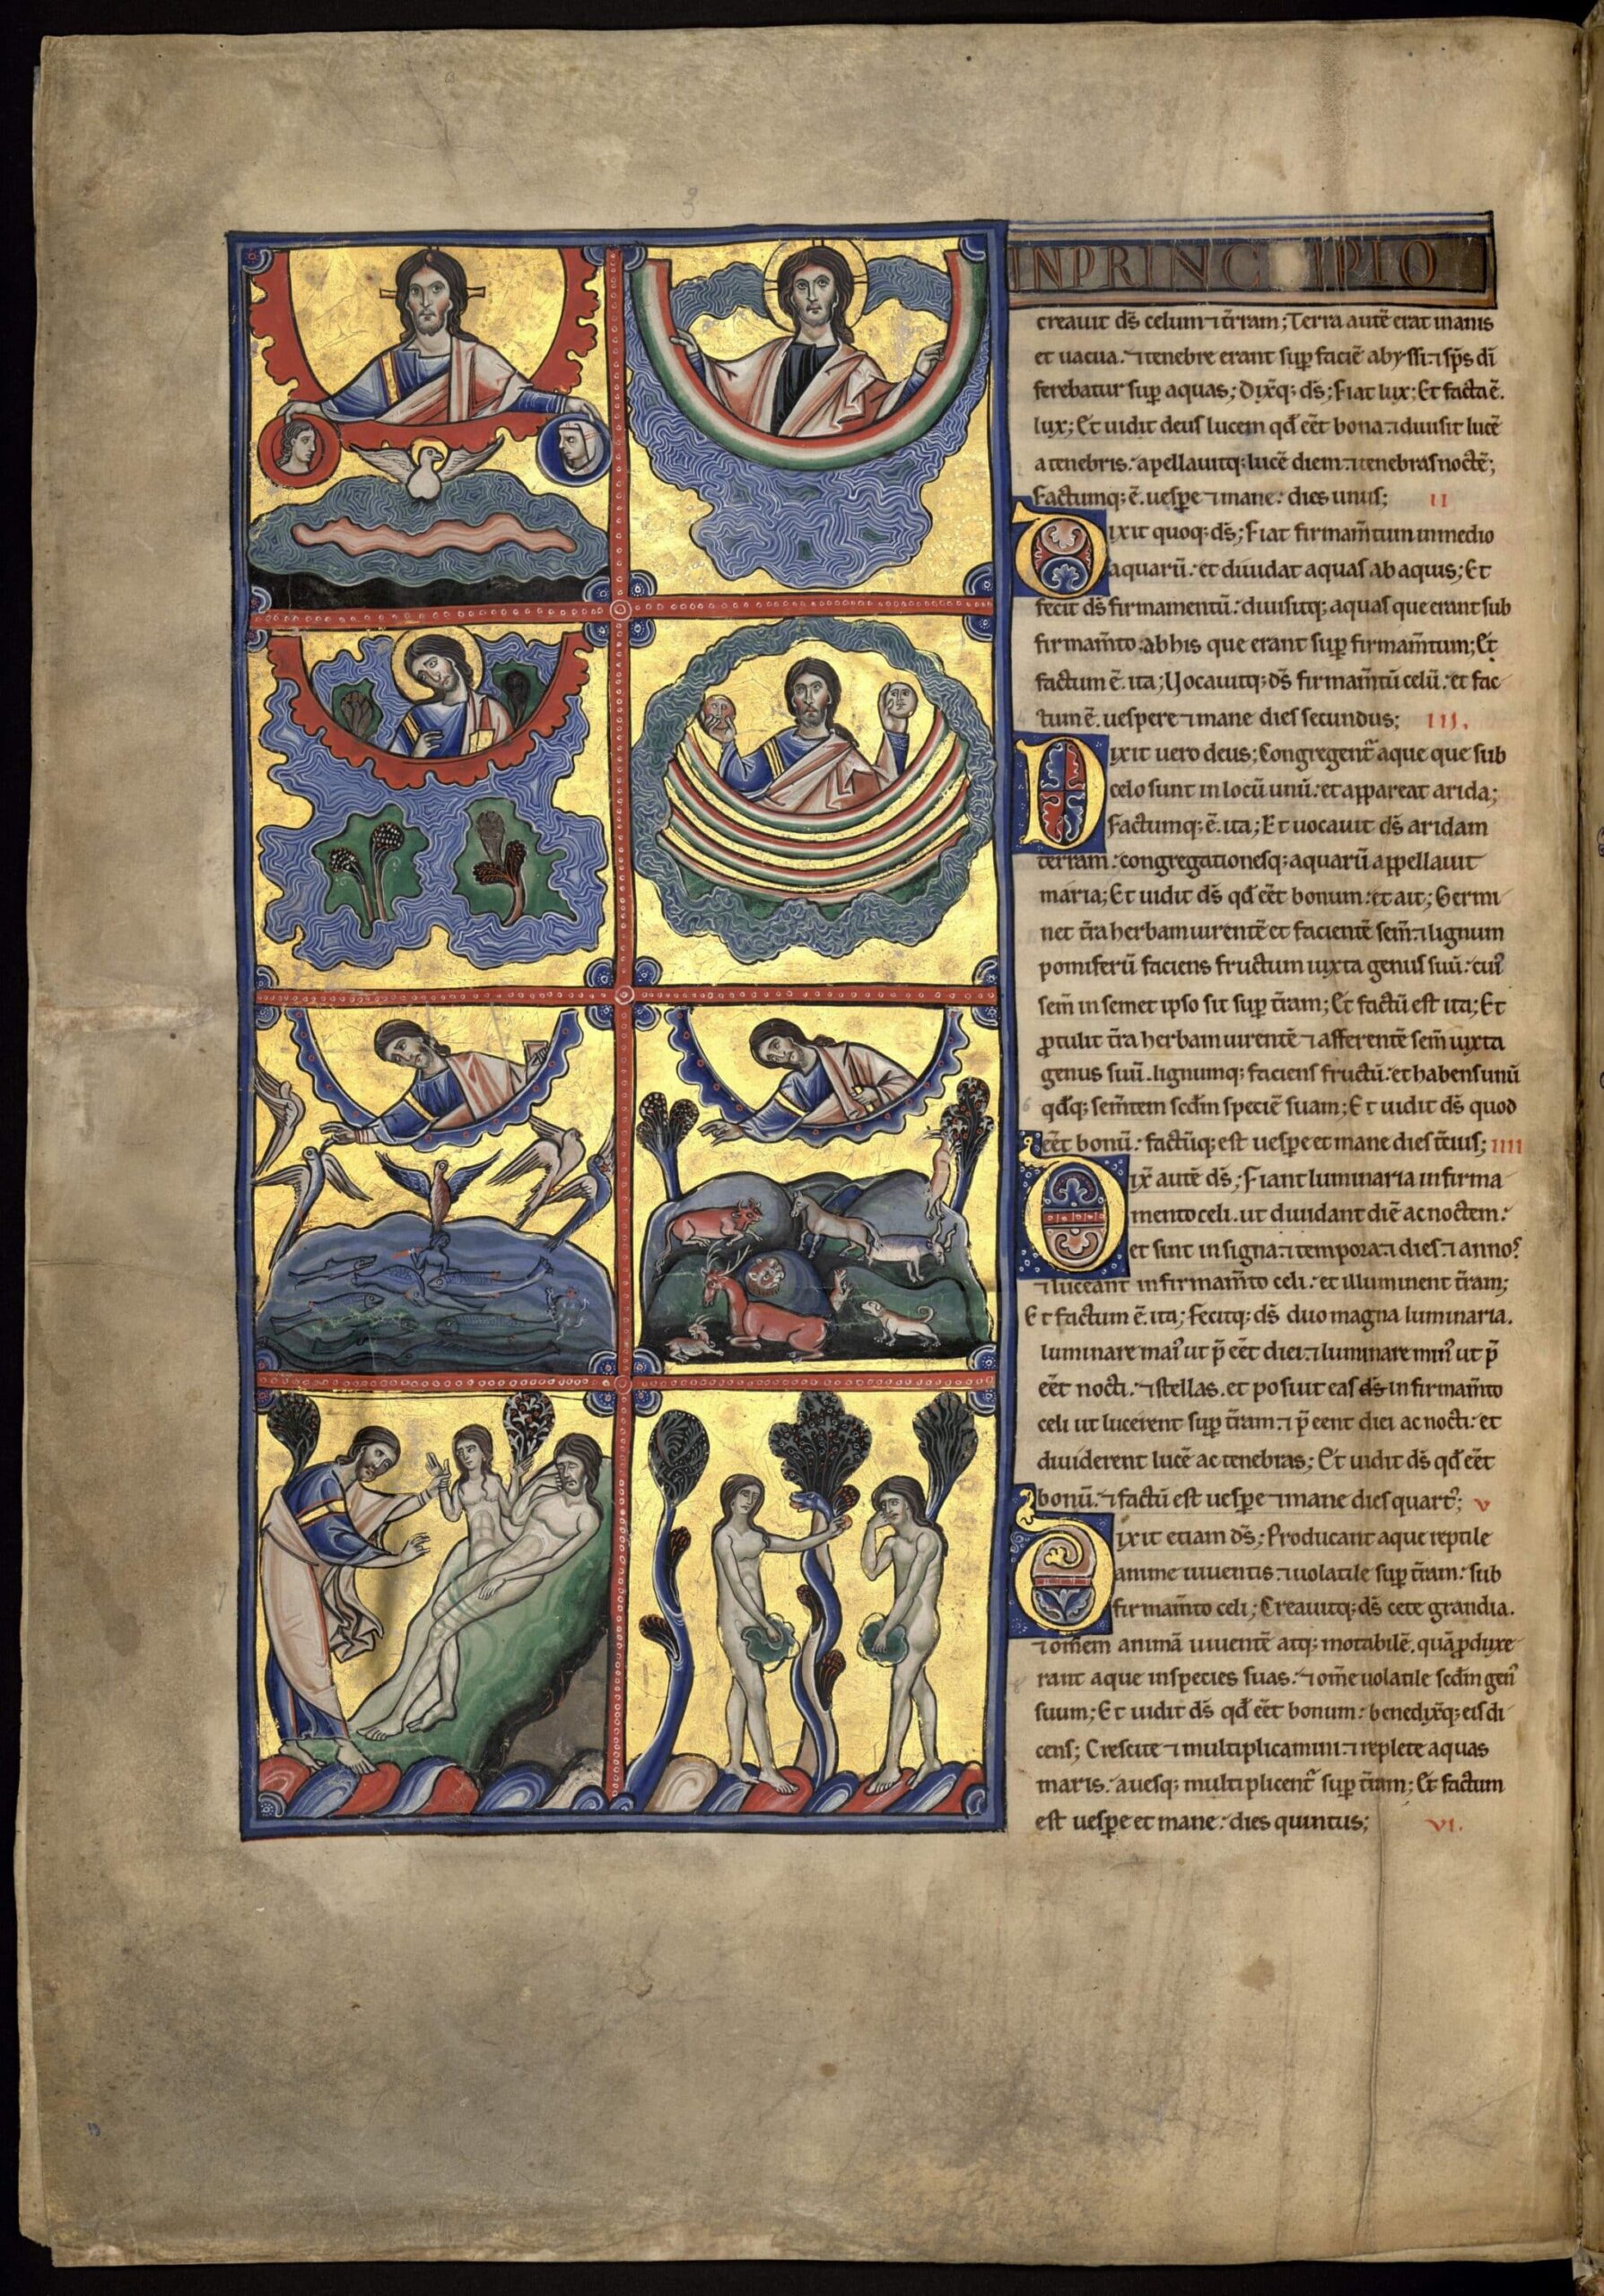 INPRINCIPIO
creauit dс̄ celum ⁊ t̄rram; Terra autē erat inanis
et uacua. ⁊ tenebre erant sup̱ faciē abyssi. ⁊ sp̄s dī
ferebatur sup̱ aquas; Dix̄q; ds̄; Fiat lux; Et facta ē.
lux; Et uidit deus lucem qd̄ eēt bona. ⁊ diuisit lucē
a tenebris. apellauitq; lucē diem. ⁊ tenebras noctē;
Factumq; ē. uesp̱e ⁊ mane. dies unus; II
Dixit quoq; ds̄; Fiat firmam̄tum in medio
aquarū. et diuidat aquas ab aquis; Et
fecit ds̄ firmamentū. diuisitq; aquas que erant sub
firmam̄to. ab his que erant sup̱ firmam̄tum; Et
factum ē. ita; Uocauitq; ds̄ firmam̄tū celū. et fac
tum ē. uespere ⁊ mane dies secundus; III.
Dixit uero deus; Congregent᷑ aque que sub
celo sunt in locū unū. et appareat arida;
Factumq; ē. ita; Et uocauit ds̄ aridam
terram. congregationesq; aquarū appellauit
maria; Et uidit ds̄ qd̄ eēt bonum. et ait; Germi
net t̄ra herbam uirentē et facientē sem̄. ⁊ lignum
pomiferū faciens fructum iuxta genus suū. cui᷒
sem̄ in semet ipso sit sup̱ t̄ram; Et factū est ita; Et
ꝓtulit t̄ra herbam uirentē ⁊ afferentē sem̄ iuxta
genus suū. lignumq; faciens fructū. et habens unū
qd̄q; sem̄tem scd̄m speciē suam; Et uidit ds̄ quod
eēt bonū. factūq; est uesp̱e et mane dies t̄cius; IIII
Dix̄ autē ds̄; Fiant luminaria in firma
mento celi. ut diuidant diē ac noctem.
et sint in signa. ⁊ tempora. ⁊ dies. ⁊ annos
⁊ luceant in firmam̄to celi. et illuminent t̄ram;
Et factum ē. ita; Fecitq; ds̄ duo magna luminaria.
luminare mai᷒ ut p̄ eēt diei. ⁊ luminare min᷒ ut p̄
eēt nocti. ⁊ stellas. et posuit eas ds̄ in firmam̄to
celi ut lucerent sup̱ t̄ram. ⁊ p̄ eent diei ac nocti. et
diuiderent lucē ac tenebras; Et uidit ds̄ qd̄ eēt
bonū. ⁊ factū est uesp̱e ⁊ mane dies quart᷒; V
Dixit etiam ds̄; Producant aque reptile
anime uiuentis. ⁊ uolatile sup̱ t̄ram. sub
firmam̄to celi; Creauitq; ds̄ cete grandia.
⁊ om̄em animā uiuentē atq; motabilē. quā ꝓduxe
rant aque in species suas. ⁊ om̄e uolatile scd̄m gen᷒
suum; Et uidit ds̄ qd̄ eēt bonum. benedix̄q; eis di
cens; Crescite ⁊ multiplicamini. ⁊ replete aquas
maris. auesq; multiplicent᷑ sup̱ t̄ram; Et factum
est uesp̱e et mane. dies quintus; VI.